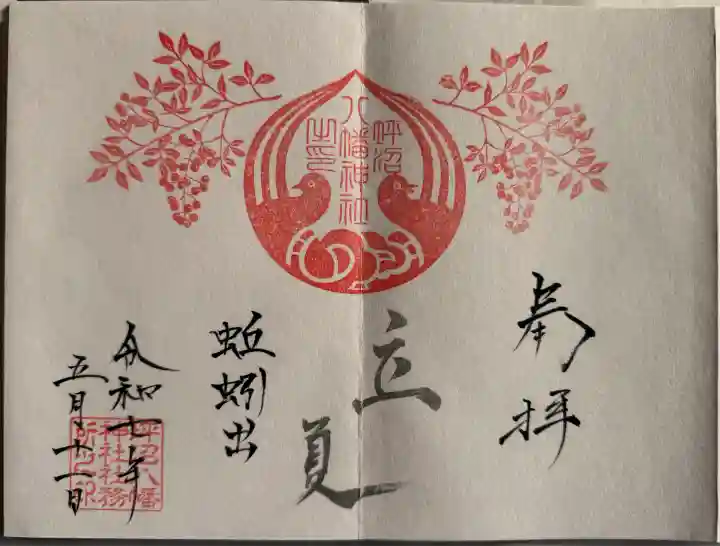 奉拝
立夏
蚯蚓出
令和七年
五月十一日
呼沼
八幡神社
之印
呼沼八幡
神社社務
所之印